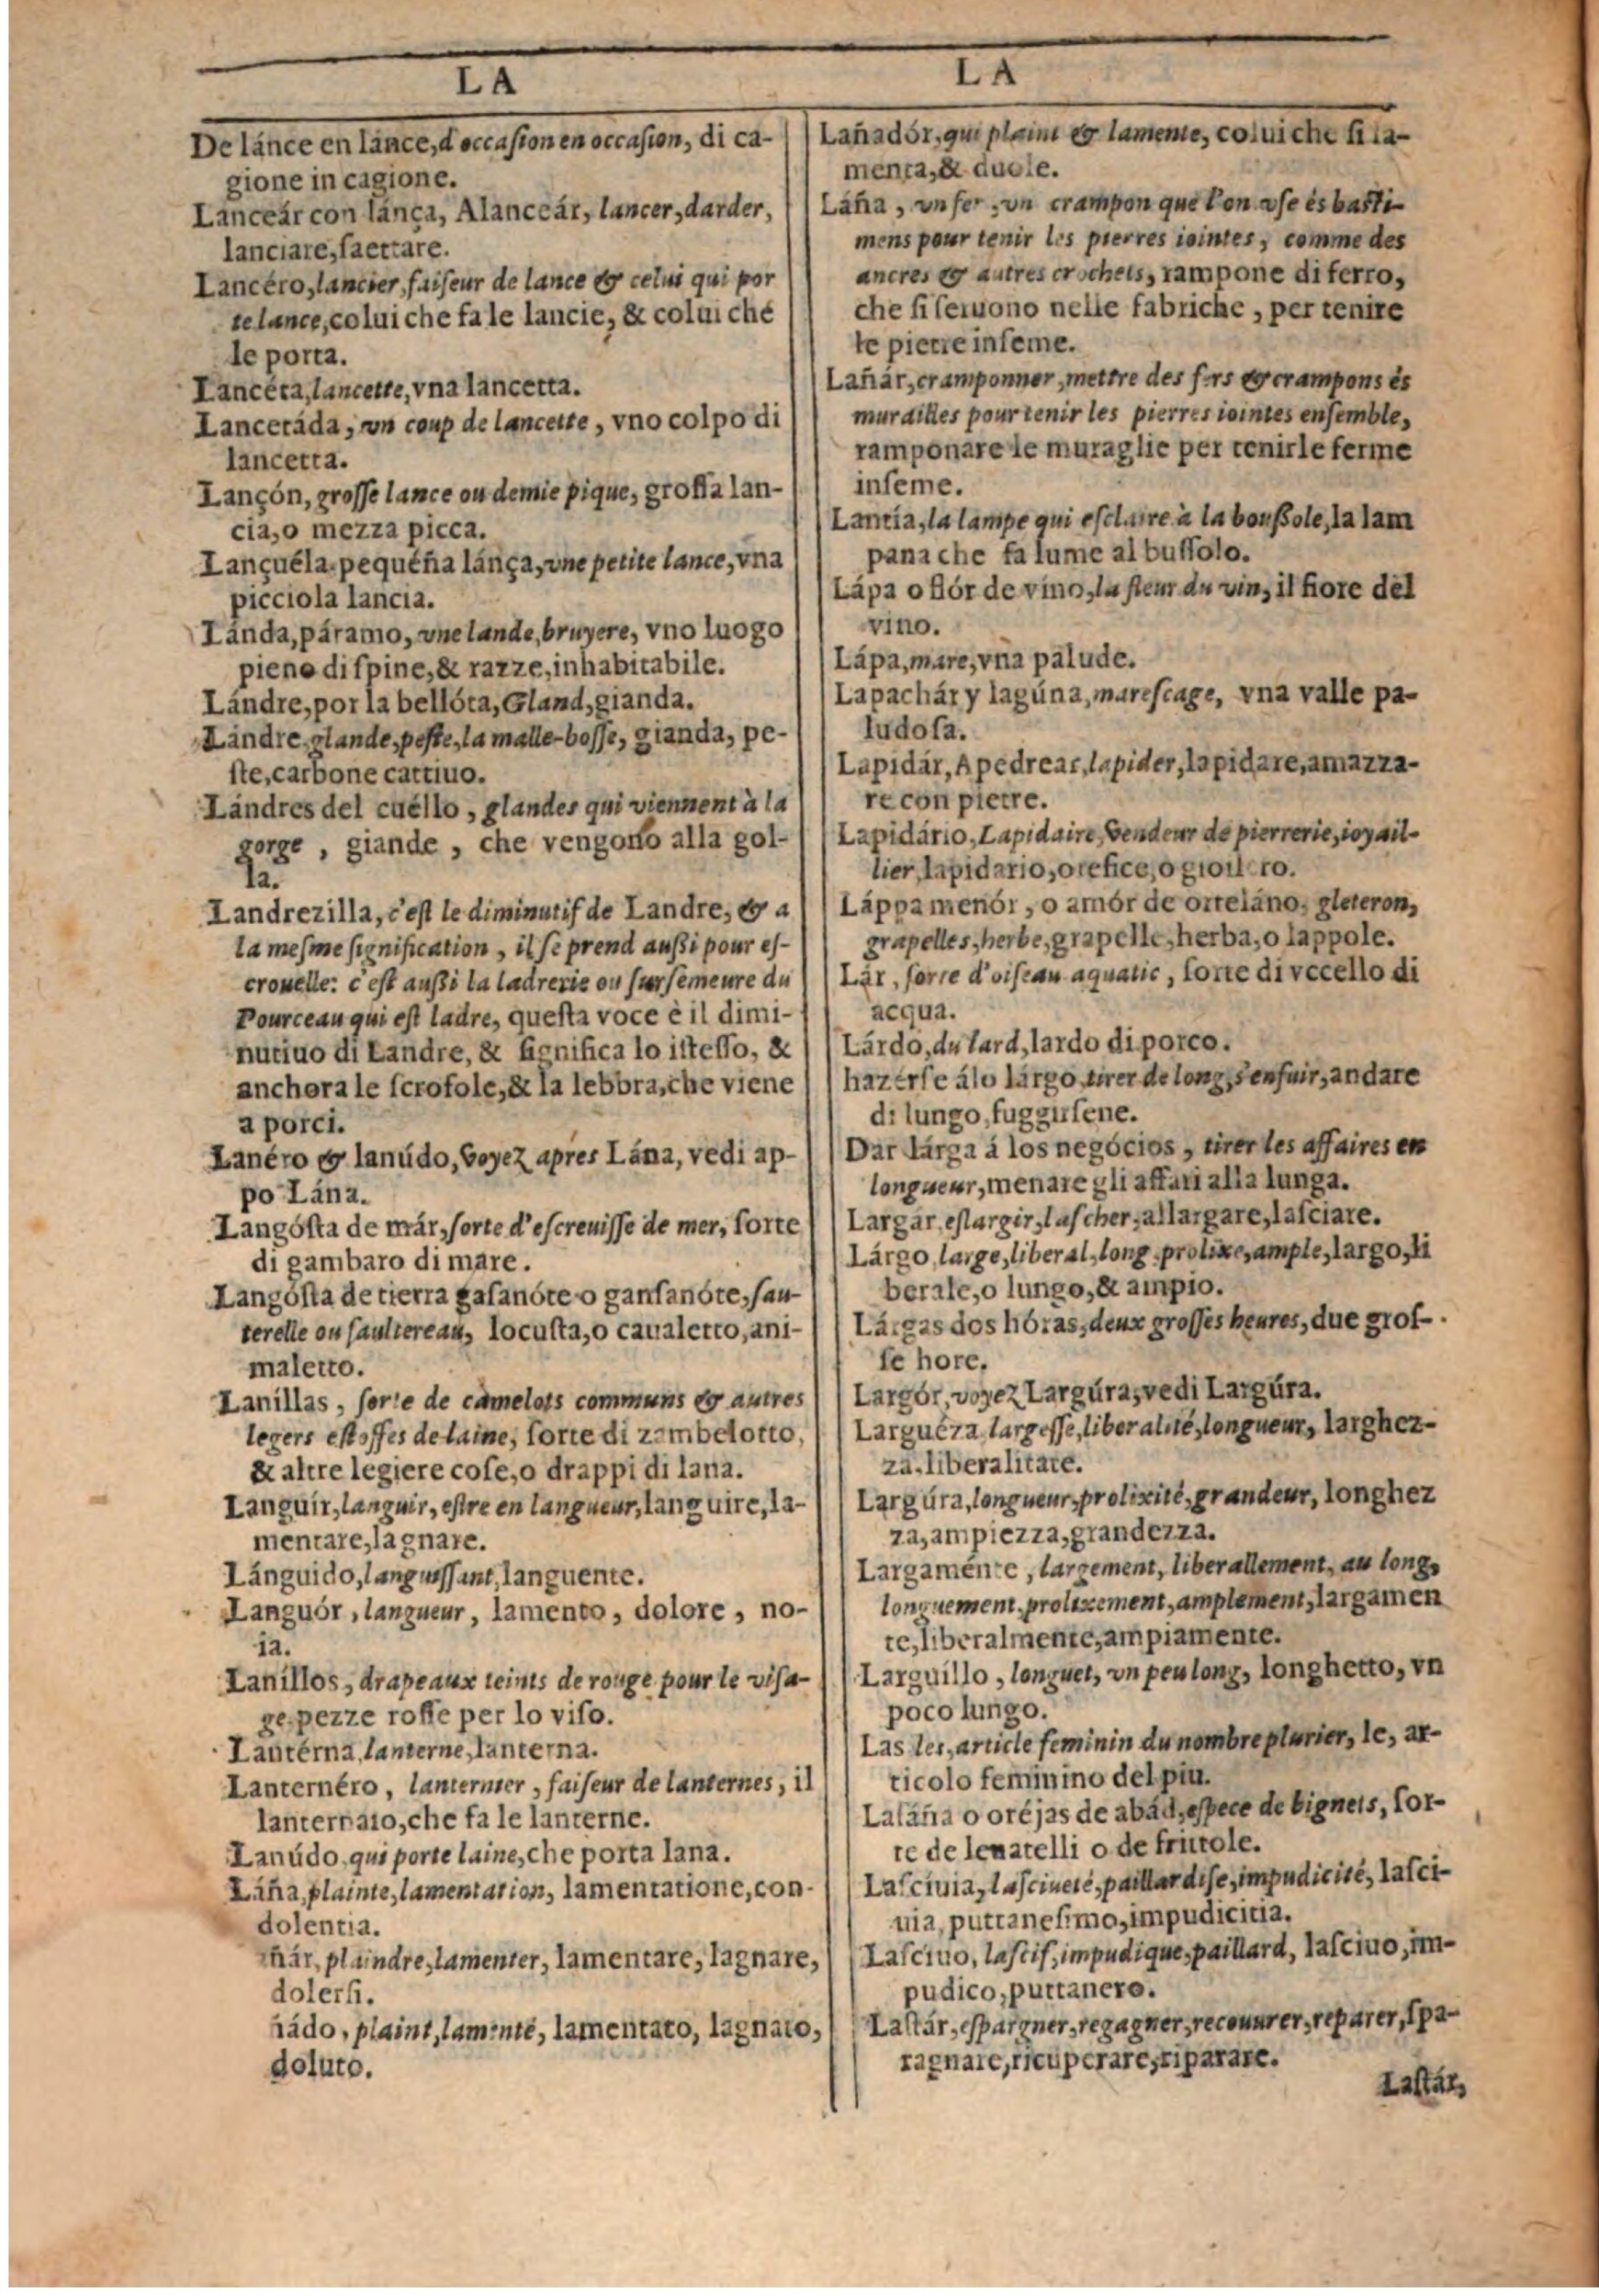 LA
De lánce en lánce, d'occaſion en occaſion, di ca-
gione in cagione.
Lanceár con lánça, Alanceár, lancer, darder,
lanciare, ſaettare.
Lancéro, lancier, faiſeur de lance & celui qui por
te lance, colui che fa le lancie, & colui ché
le porta.
Lancéta, lancette, vna lancetta.
Lancetáda, vn coup de lancette, vno colpo di
lancetta.
Lançón, groſſe lance ou demie pique, groſſa lan-
cia, o mezza picca.
Lançuéla pequéña lánça, vne petite lance, vna
picciola lancia.
Lánda, páramo, vne lande, bruyere, vno luogo
pieno di ſpine, & razze, inhabitabile.
Lándre, por la bellóta, Gland, gianda.
Lándre, glande, peſte, la malle-boſſe, gianda, pe-
ſte, carbone cattiuo.
Lándres del cuéllo, glandes qui viennent à la
gorge, giande, che vengono alla gol-
la.
Landrezilla, c'eſt le diminutif de Landre, & a
la meſme ſignification, il ſe prend auſſi pour eſ-
crouelle: c'eſt auſſi la ladrerie ou surſemeure du
Pourceau qui eſt ladre, queſta voce è il dimi-
nutiuo di Landre, & ſignifica lo iſteſſo, &
anchora le ſcrofole, & la lebbra, che viene
a porci.
Lanéro & lanúdo, Voyez apres Lána, vedi ap-
po Lána.
Langóſta de már, ſorte d'eſcreuiſſe de mer, ſorte
di gambaro di mare.
Langóſta de tierra gaſanóte o ganſanóte, ſau-
terelle ou ſaultereau, locuſta, o caualetto, ani-
maletto.
Lanillas, ſorte de camelots communs & autres
legers eſtoffes de laine, ſorte di zambelotto,
& altre legiere coſe, o drappi di lana.
Languír, languir, eſtre en langueur, languire, la-
mentare, lagnare.
Lánguido, languiſſant, languente.
Languór, langueur, lamento, dolore, no-
ia.
Lanillos, drapeaux teints de rouge pour le viſa-
ge, pezze roſſe per lo viſo.
Lantérna, lanterne, lanterna.
Lanternéro, lanternier, faiſeur de lanternes, il
lanternaio, che fa le lanterne.
Lanúdo, qui porte laine, che porta lana.
Láña, plainte, lamentation, lamentatione, con-
dolentia.
ñár, plaindre, lamenter, lamentare, lagnare,
dolerſi.
ñádo, plaint, lamenté, lamentato, lagnato,
doluto.
LA
Lañadór, qui plaint & lamente, colui che ſi la-
menta, & duole.
Láña, vn fer, vn crampon que l'on vſe és baſti-
mens pour tenir les pierres iointes, comme des
ancres & autres crochets, rampone di ferro,
che ſi ſeruono nelle fabriche, per tenire
le pietre inſeme.
Lañár, cramponner, mettre des fers & crampons és
murailles pour tenir les pierres iointes enſemble,
ramponare le muraglie per tenirle ferme
inſeme.
Lantía, la lampe qui eſclaire à la bouſſole, la lam
pana che fa lume al buſſolo.
Lápa o flór de víno, la fleur du vin, il fiore del
vino.
Lápa, mare, vna palude.
Lapachár y lagúna, mareſcage, vna valle pa-
ludoſa.
Lapidár, Apedrear, lapider, lapidare, amazza-
re con pietre.
Lapidário, Lapidaire, Vendeur de pierrerie, ioyail-
lier, lapidario, orefice, o gioilero.
Láppa menór, o amór de ortelàno, gleteron,
grapelles, herbe, grapelle, herba, o lappole.
Lár, ſorte d'oiſeau aquatic, ſorte di vccello di
acqua.
Lárdo, du lard, lardo di porco.
hazérſe álo lárgo, tirer de long, s'enfuir, andare
di lungo, fuggirſene.
Dar lárga á los negócios, tirer les affaires en
longueur, menare gli affari alla lunga.
Largár, eſlargir, laſcher, allargare, laſciare.
Lárgo, large, liberal, long, prolixe, ample, largo, li
berale, o lungo, & ampio.
Lárgas dos hóras, deux groſſes heures, due groſ-
ſe hore.
Largór, voyez Largúra, vedi Largúra.
Larguéza, largeſſe, liberalité, longueur, larghez-
za, liberalitate.
Largúra, longueur, prolixité, grandeur, longhez
za, ampiezza, grandezza.
Largaménte, largement, liberallement, au long,
longuement, prolixement, amplement, largamen
te, liberalmente, ampiamente.
Larguíllo, longuet, vn peu long, longhetto, vn
poco lungo.
Las les, article feminin du nombre plurier, le, ar-
ticolo feminino del piu.
Laſáña o oréjas de abád, eſpece de bignets, ſor-
te de leuatelli o de frittole.
Laſcíuia, laſciueté, paillardiſe, impudicité, laſci-
uia, puttaneſimo, impudicitia.
Laſcíuo, laſcif, impudique, paillard, laſciuo, im-
pudico, puttanero.
Laſtár, eſpargner, regagner, recouurer, reparer, ſpa-
ragnare, ricuperare, riparare.
Laſtár,